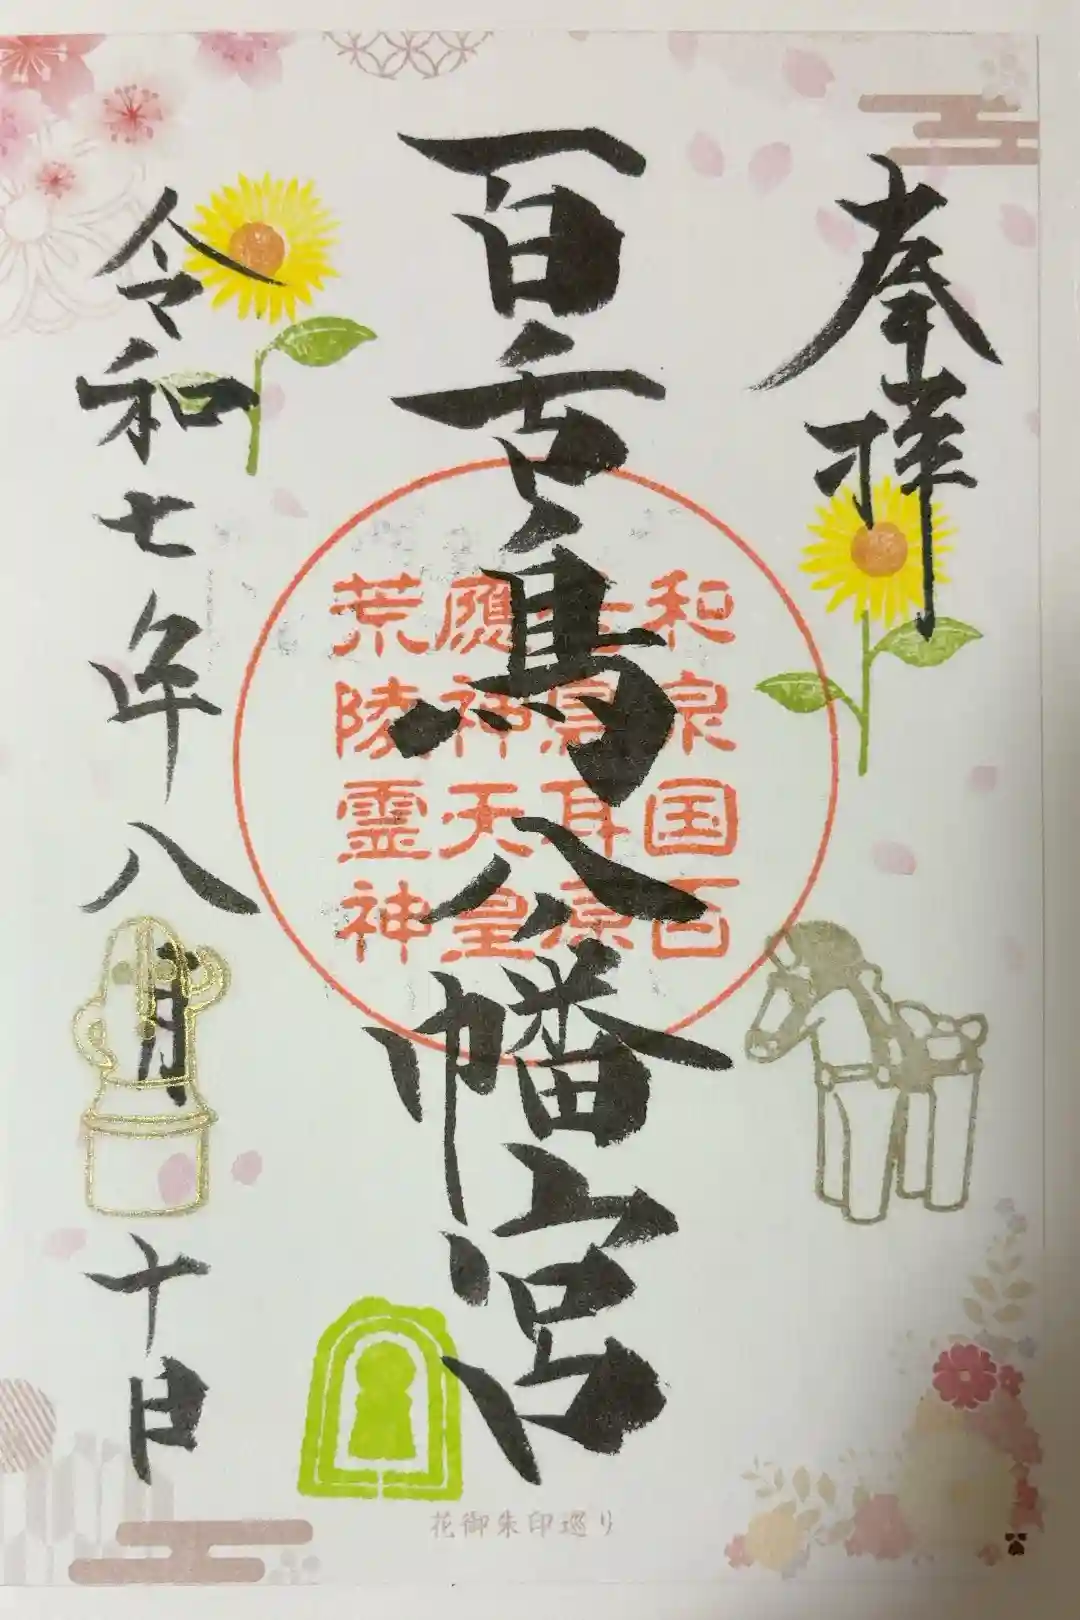 奉拝
百舌鳥八幡宮
和泉国百
舌鳥耳原
應神天皇
荒陵霊神
令和七年八月十日
花御朱印巡り